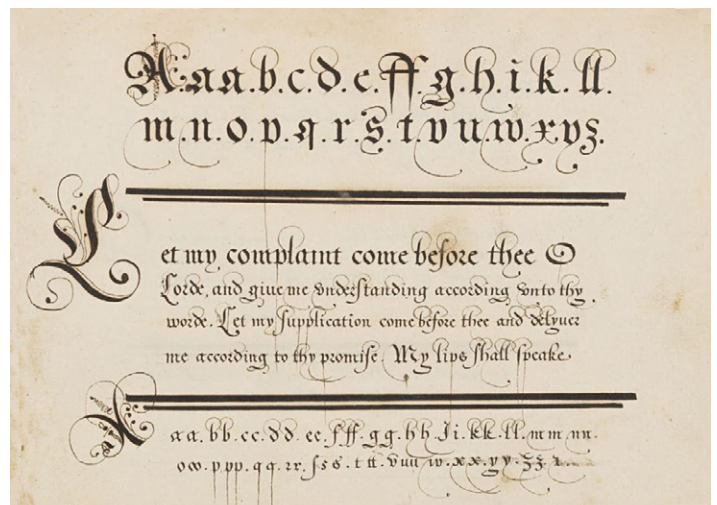 A.a a.b.c.d.e.ff.g.h.i.k.ll.
m.n.o.p.q.r.s.t.v u.w.x y z.
Let my complaint come before thee O
Lorde, and giue me vnderstanding according vnto thy
worde. Let my ſupplication come before thee and delyuer
me according to thy promiſe. My lips ſhall ſpeake
A aa.bb.cc.dd ee.fff.gg.hh Ji.kk.ll.mm nn.
oo.ppp.qq.rr.ſss.t tt.vuu w.xx.yy.zz